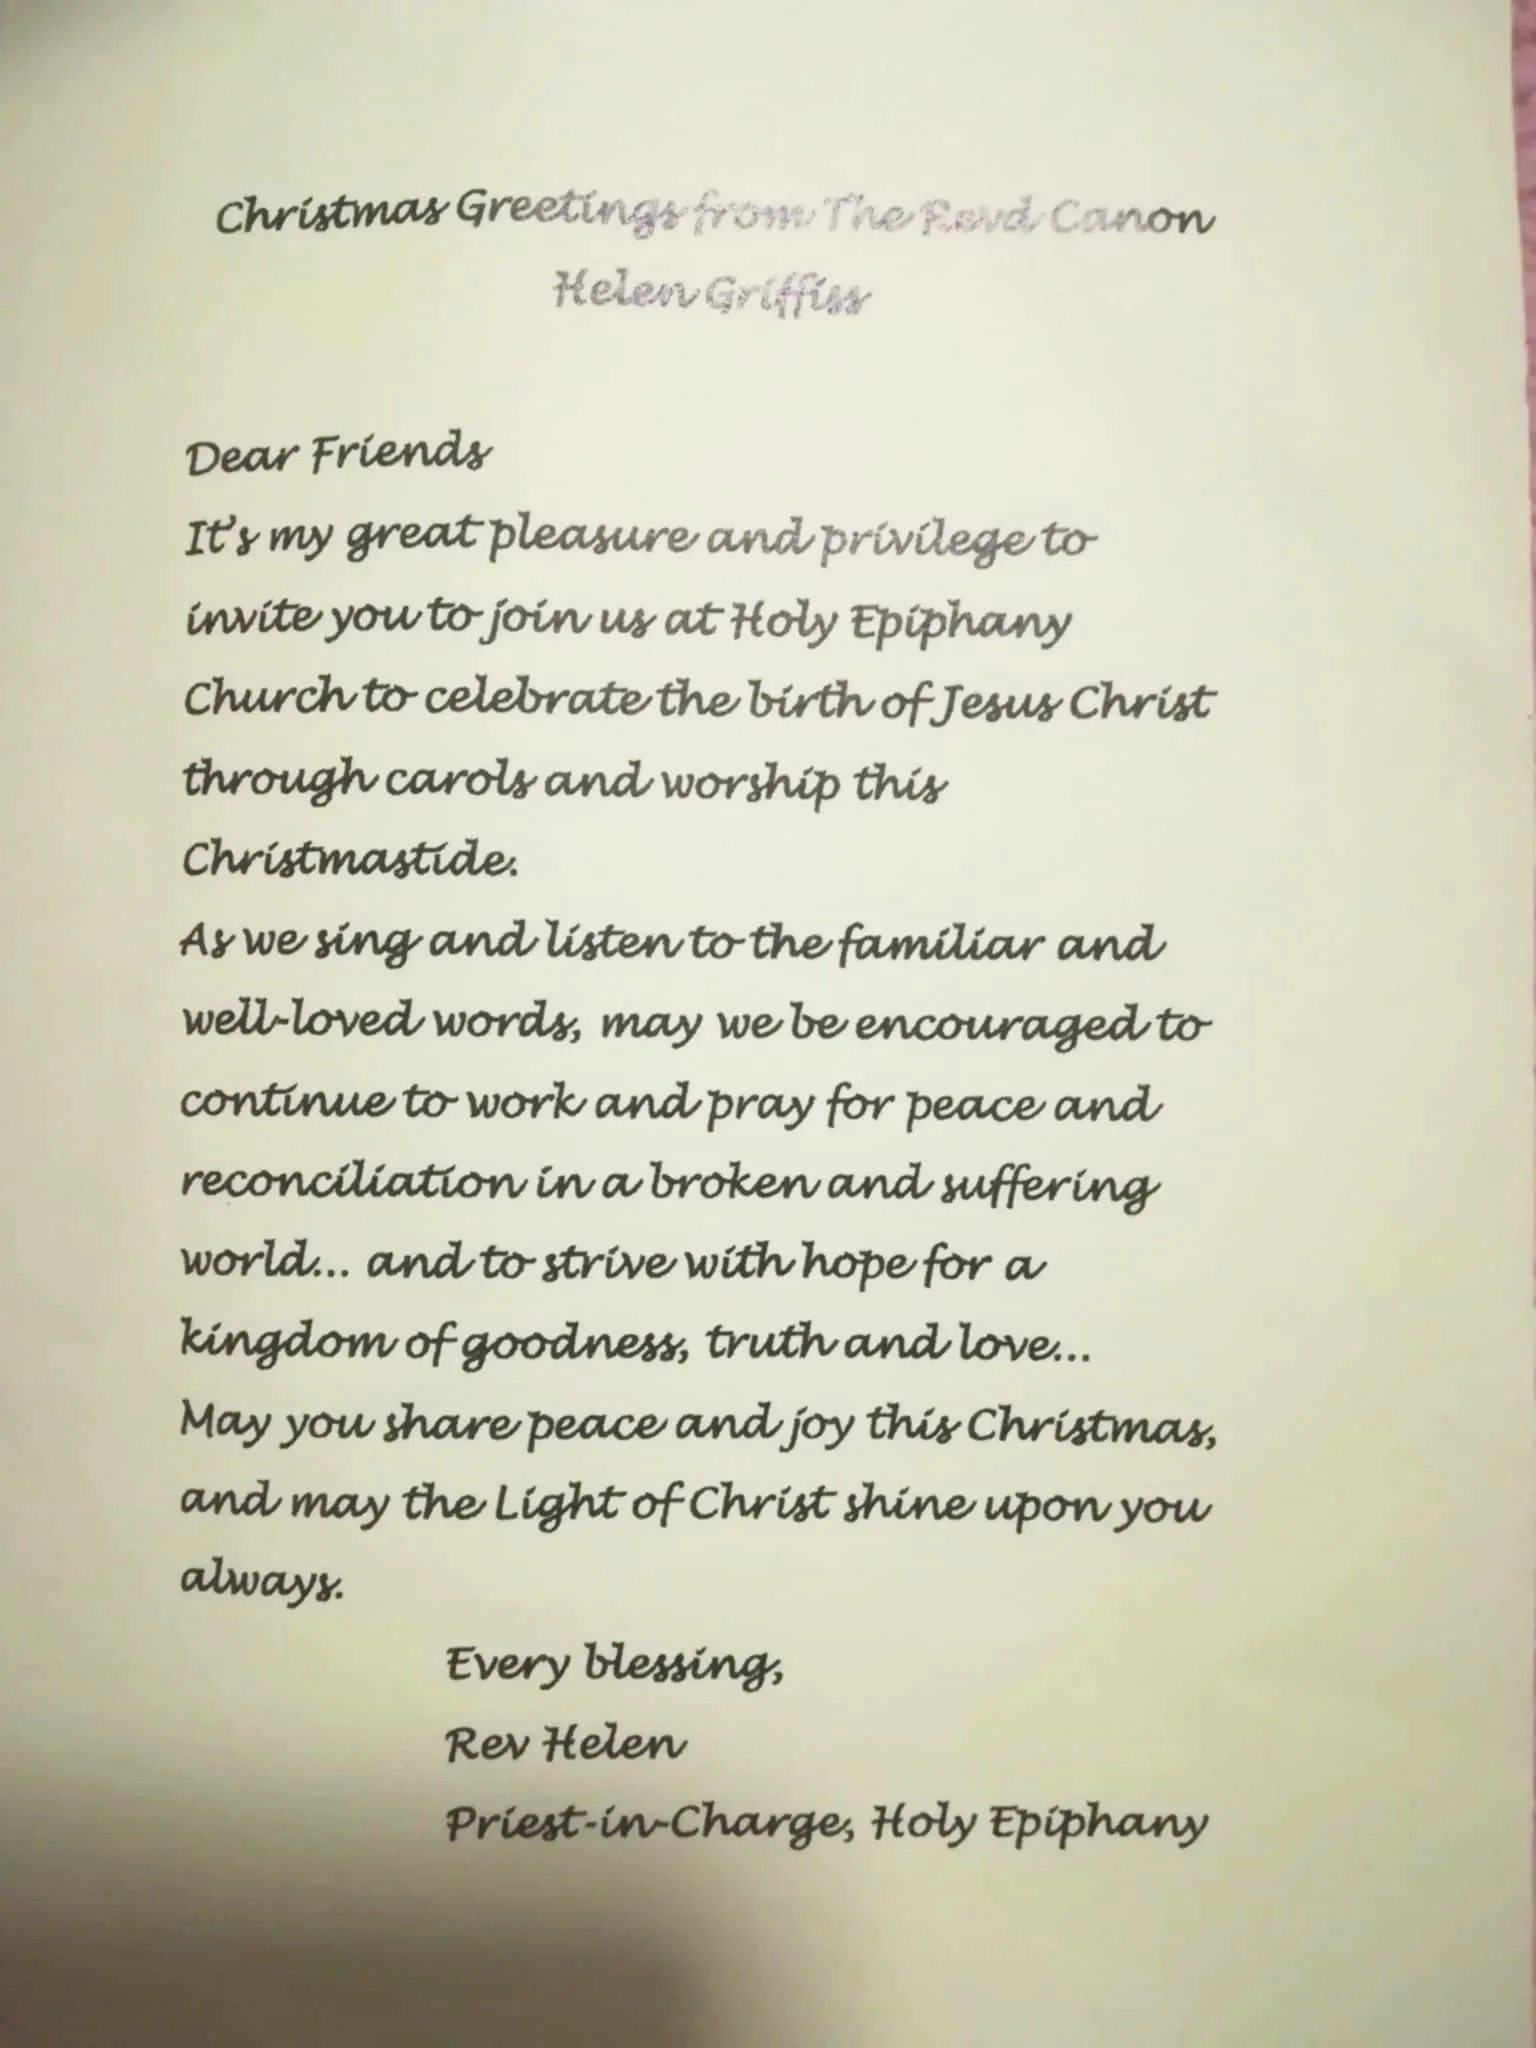 Christmas Greetings from The Revd Canon
Helen Griffiss
Dear Friends
It's my great pleasure and privilege to
invite you to join us at Holy Epiphany
Church to celebrate the birth of Jesus Christ
through carols and worship this
Christmastide.
As we sing and listen to the familiar and
well-loved words, may we be encouraged to
continue to work and pray for peace and
reconciliation in a broken and suffering
world... and to strive with hope for a
kingdom of goodness, truth and love...
May you share peace and joy this Christmas,
and may the Light of Christ shine upon you
always.
Every blessing,
Rev Helen
Priest-in-Charge, Holy Epiphany